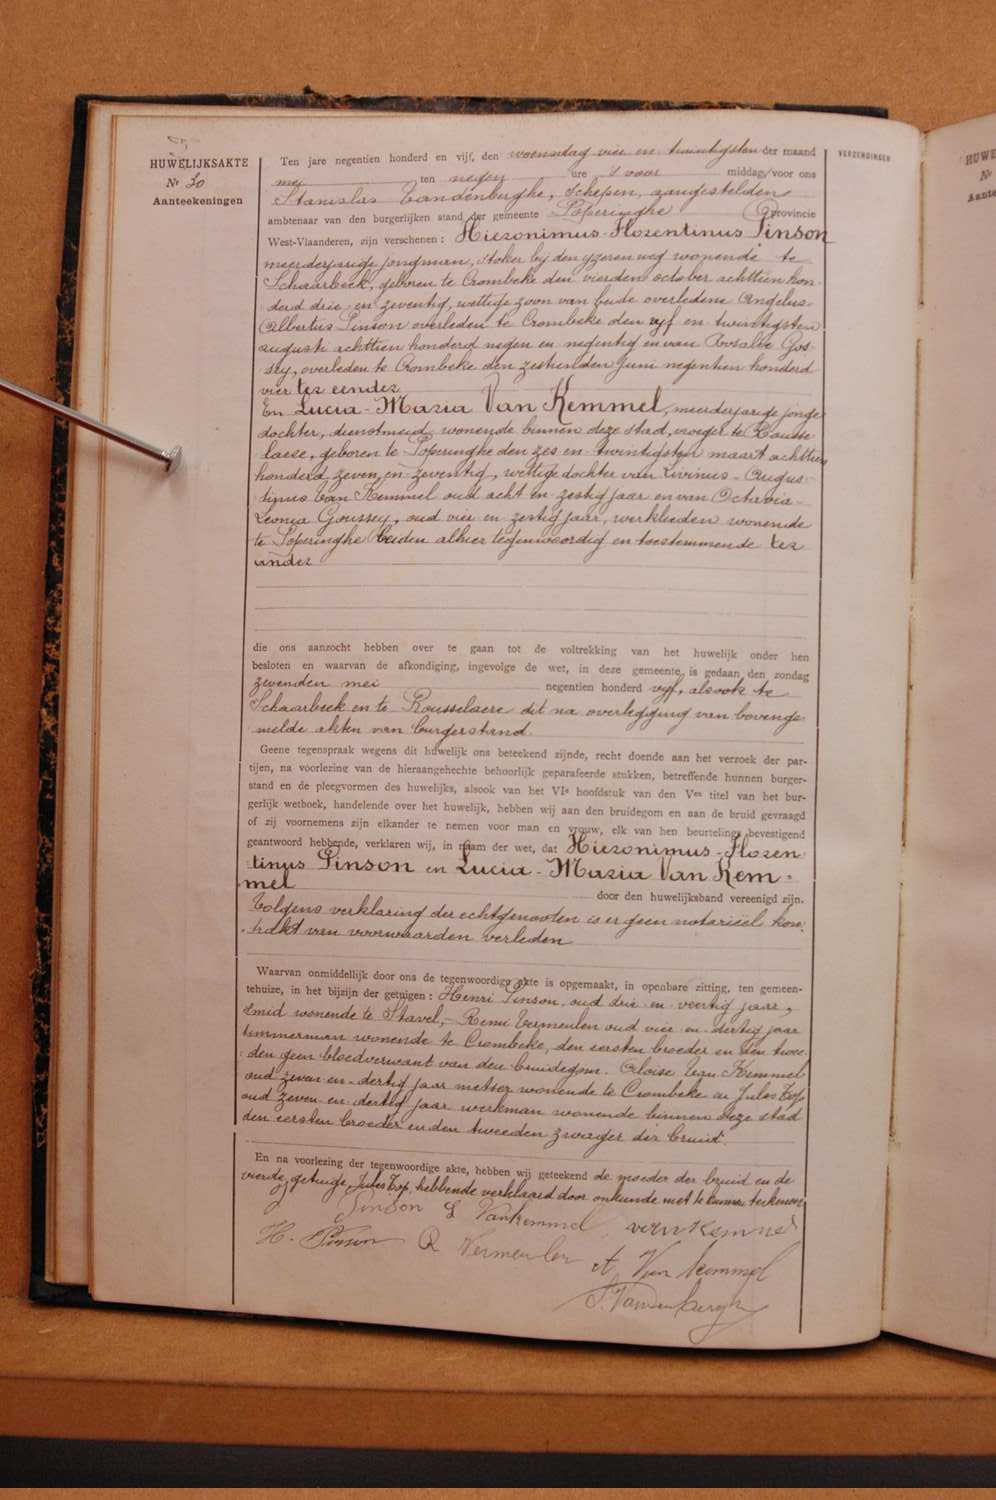 HUWELIJKSAKTE
Nr 30
Aanteekeningen
VERZENDINGEN
Ten jare negentien honderd en vijf, den woensdag vier en twintigsten der maand
mei ten negen ure 's voor middag, voor ons
Stanislas Vandenberghe, Schepen, aangestelden
ambtenaar van den burgerlijken stand der gemeente Poperinghe Provincie
West-Vlaanderen, zijn verschenen : Hieronimus-Florentinus Pinson
meerderjarige jongman, stoker bij den yzeren weg wonende te
Schaarbeek, geboren te Crombeke den vierden october achttien hon-
derd drie en zeventig, wettige zoon van beide overledene Angelus-
Albertus Pinson overleden te Crombeke den vijf en twintigsten
augusti achttien honderd negen en negentig en van Rosalie Gos-
sey, overleden te Crombeke den zestienden Juni negentien honderd
vier ter eender
En Lucia-Maria Van Kemmel, meerderjarige jonge
dochter, dienstmeid, wonende binnen deze stad, vroeger te Rousse-
laere, geboren te Poperinghe den zes en twintigsten maart achttien
honderd zeven en zeventig, wettige dochter van Livinus-Augus-
tinus Van Kemmel oud acht en zestig jaar en van Octavia-
Leonia Goussey, oud vier en zestig jaar, werklieden wonende
te Poperinghe beiden alhier tegenwoordig en toestemmende ter
ander
die ons aanzocht hebben over te gaan tot de voltrekking van het huwelijk onder hen
besloten en waarvan de afkondiging, ingevolge de wet, in deze gemeente is gedaan den zondag
zevenden mei negentien honderd vijf, alsook te
Schaarbeek en te Rousselaere dit na overlegging van bovenge-
melde akten van burgerstand.
Geene tegenspraak wegens dit huwelijk ons beteekend zijnde, recht doende aan het verzoek der par-
tijen, na voorlezing van de hieraangehechte behoorlijk geparafeerde stukken, betreffende hunnen burger-
stand en de pleegvormen des huwelijks, alsook van het VIe hoofdstuk van den Ven titel van het bur-
gerlijk wetboek, handelende over het huwelijk, hebben wij aan den bruidegom en aan de bruid gevraagd
of zij voornemens zijn elkander te nemen voor man en vrouw, elk van hen beurtelings bevestigend
geantwoord hebbende, verklaren wij, in naam der wet, dat Hieronimus-Floren-
tinus Pinson en Lucia-Maria Van Kem-
mel door den huwelijksband vereenigd zijn.
Volgens verklaring der echtgenooten is er geen notarieel kon-
trakt van voorwaarden verleden
Waarvan onmiddellijk door ons de tegenwoordige akte is opgemaakt, in openbare zitting, ten gemeen-
tehuize, in het bijzijn der getuigen : Henri Pinson, oud drie en veertig jaar,
smid wonende te Stavel, Remi Vermeulen oud vier en dertig jaar
timmerman wonende te Crombeke, den eersten broeder en den twee-
den geen bloedverwant van den bruidegom. Aloise Van Kemmel
oud zeven en dertig jaar metser wonende te Crombeke en Jules Top
oud zeven en dertig jaar werkman wonende binnen deze stad
den eersten broeder en den tweeden zwager der bruid.
En na voorlezing der tegenwoordige akte, hebben wij geteekend de moeder der bruid en de
vierde getuige, Jules Top, hebbende verklaard door onkunde niet te kunnen teekenen
Pinson L Vankemmel van Kemmel
H. Pinson R Vermeulen A Van kemmel
S. Vandenberghe